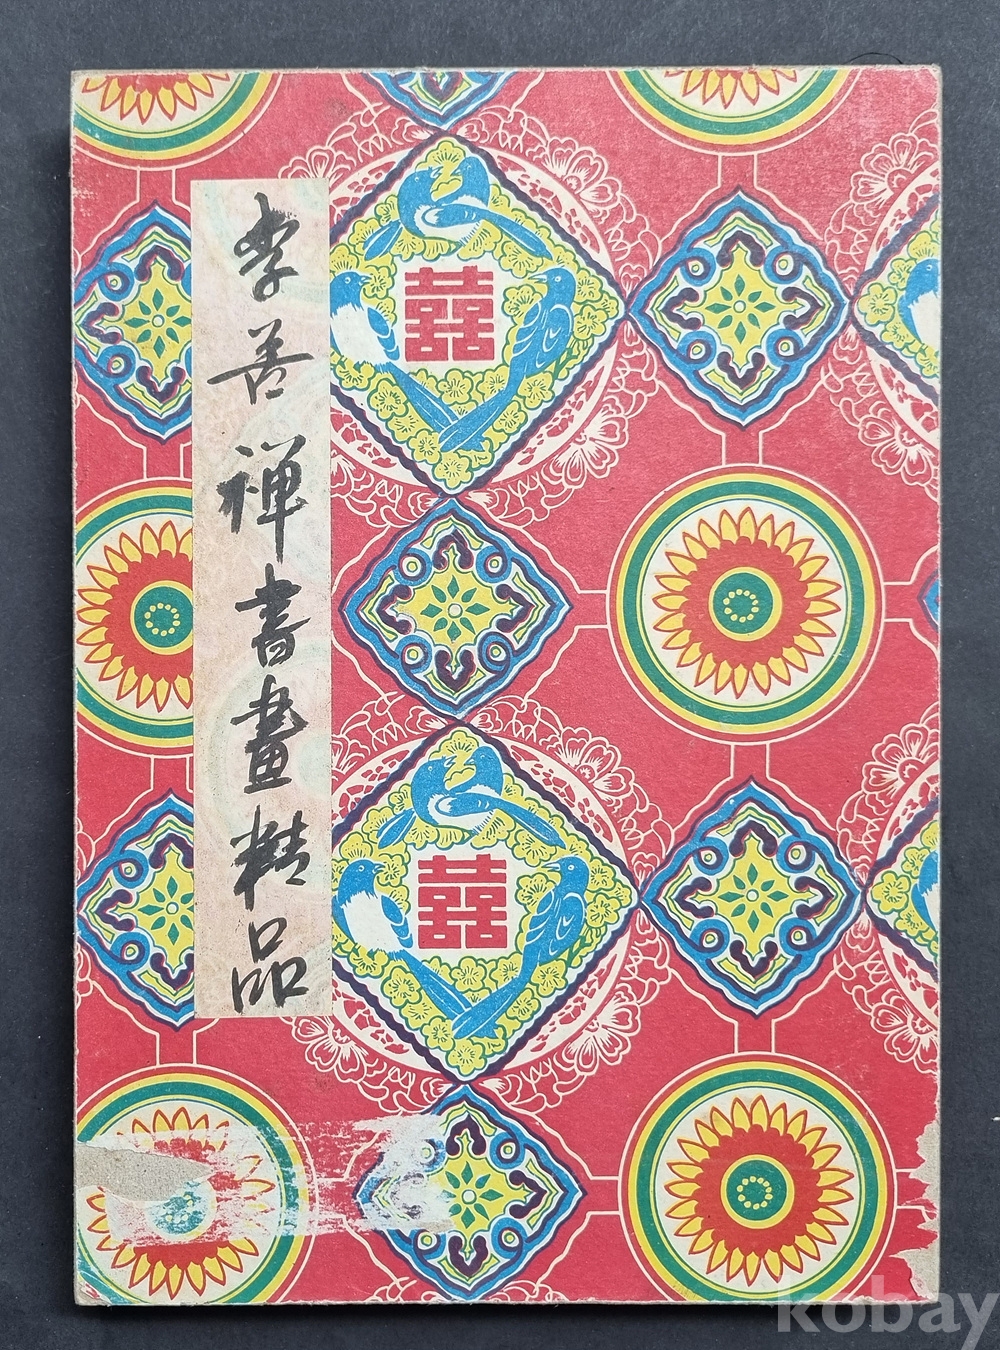 李苦禅書畫精品
囍
囍
kobay